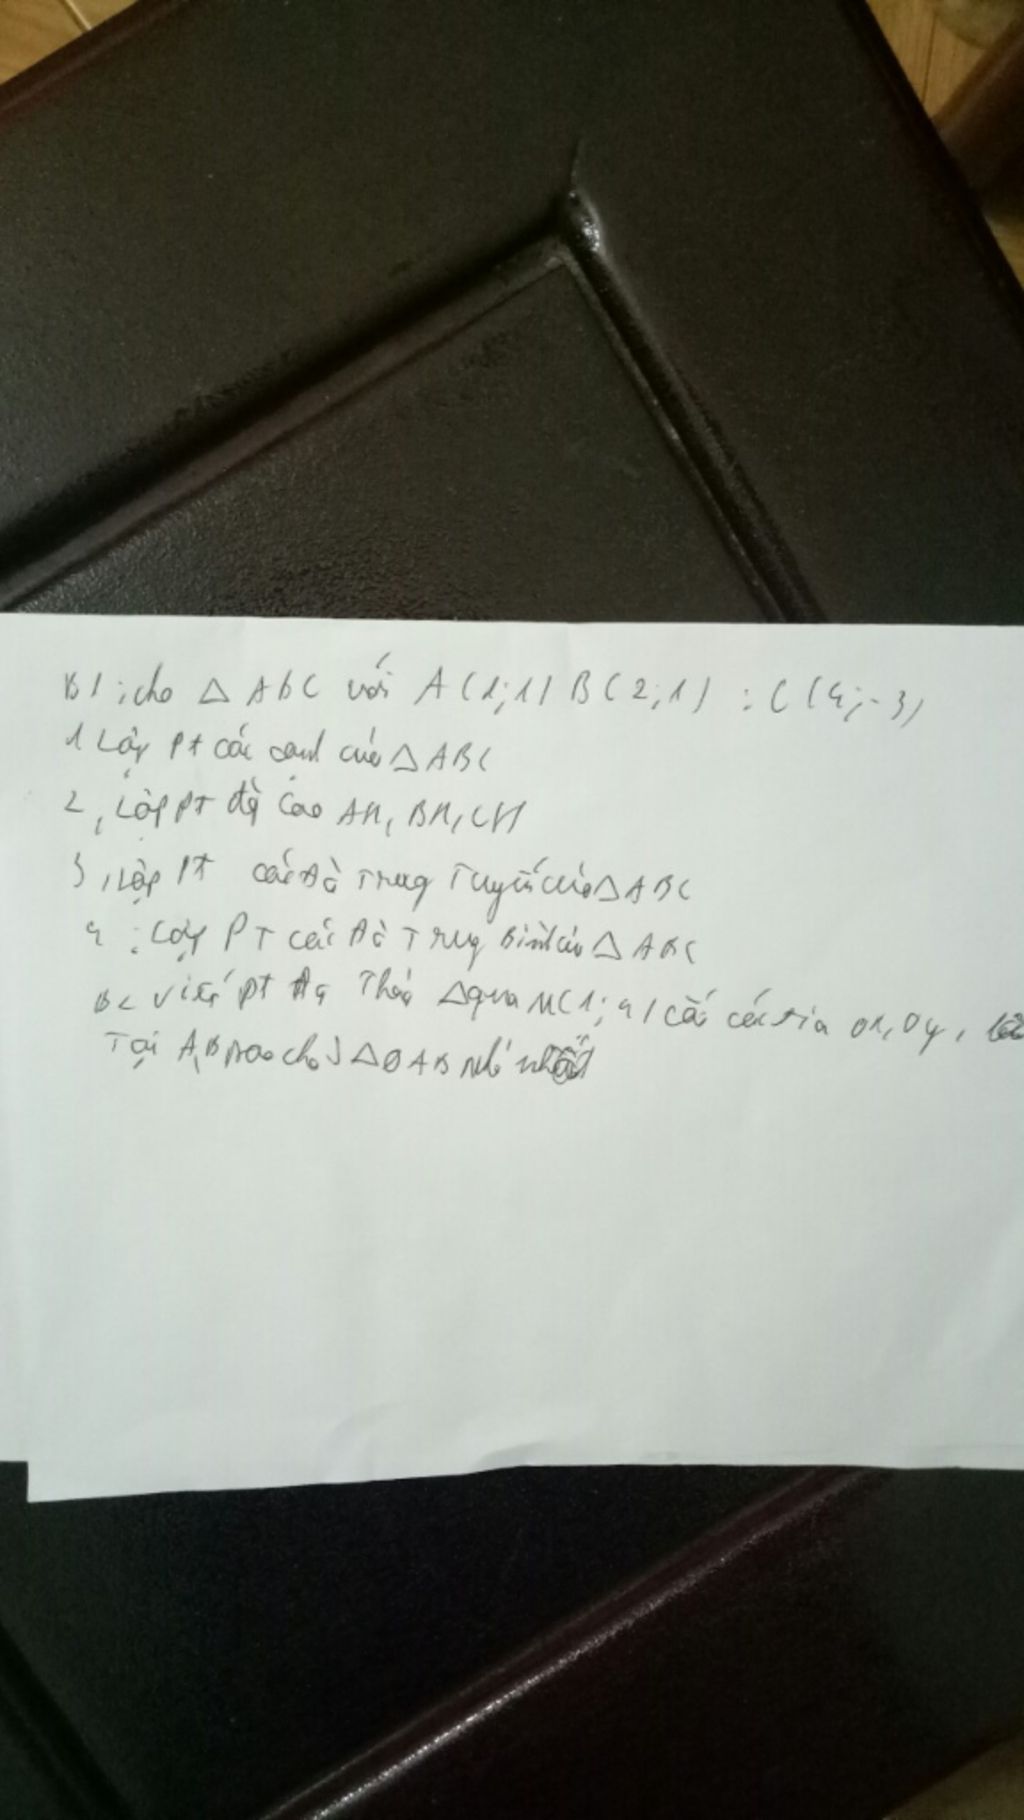 B1; cho △ ABC với A(1;1) B(2;1) : C(4;-3)
1 Lập Pt các cạnh của △ ABC
2, Lập PT đg cao AH, BH, CH
3, Lập PT các đg Trung Tuyến của △ ABC
4 : Lập PT các đg Trung Bình của △ ABC
B2 Viết pt đg Thẳng △ qua M(1;4) cắt các tia ox, oy,
Tại A,B sao cho S △ OAB nhỏ nhất